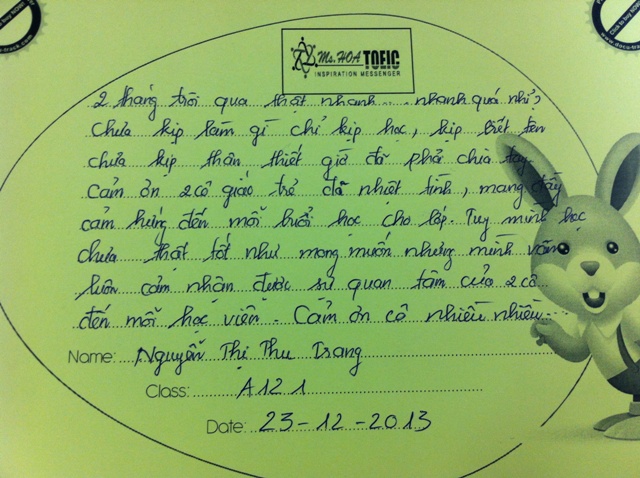 Ms. HOA TOEIC
INSPIRATION MESSENGER
2 tháng trôi qua thật nhanh... nhanh quá nhỉ?
Chưa kịp làm gì chỉ kịp học, kịp biết tên
chưa kịp thân thiết giờ đã phải chia tay
Cảm ơn 2 cô giáo trẻ đã nhiệt tình, mang đầy
cảm hứng đến mỗi buổi học cho lớp. Tuy mình học
chưa thật tốt như mong muốn nhưng mình vẫn
luôn cảm nhận được sự quan tâm của 2 cô
đến mỗi học viên. Cảm ơn cô nhiều nhiều...
Name: Nguyễn Thị Thu Trang
Class: A121
Date: 23-12-2013